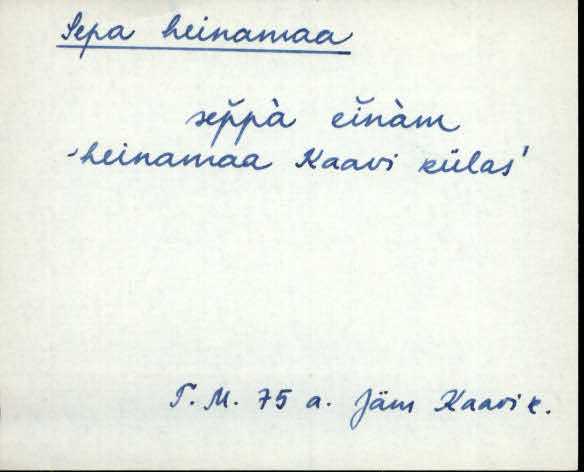 Sepa heinamaa
sep̆pà eĭnàm
'heinamaa Kaavi külas'
T. M. 75 a. Jäm Kaavi k.